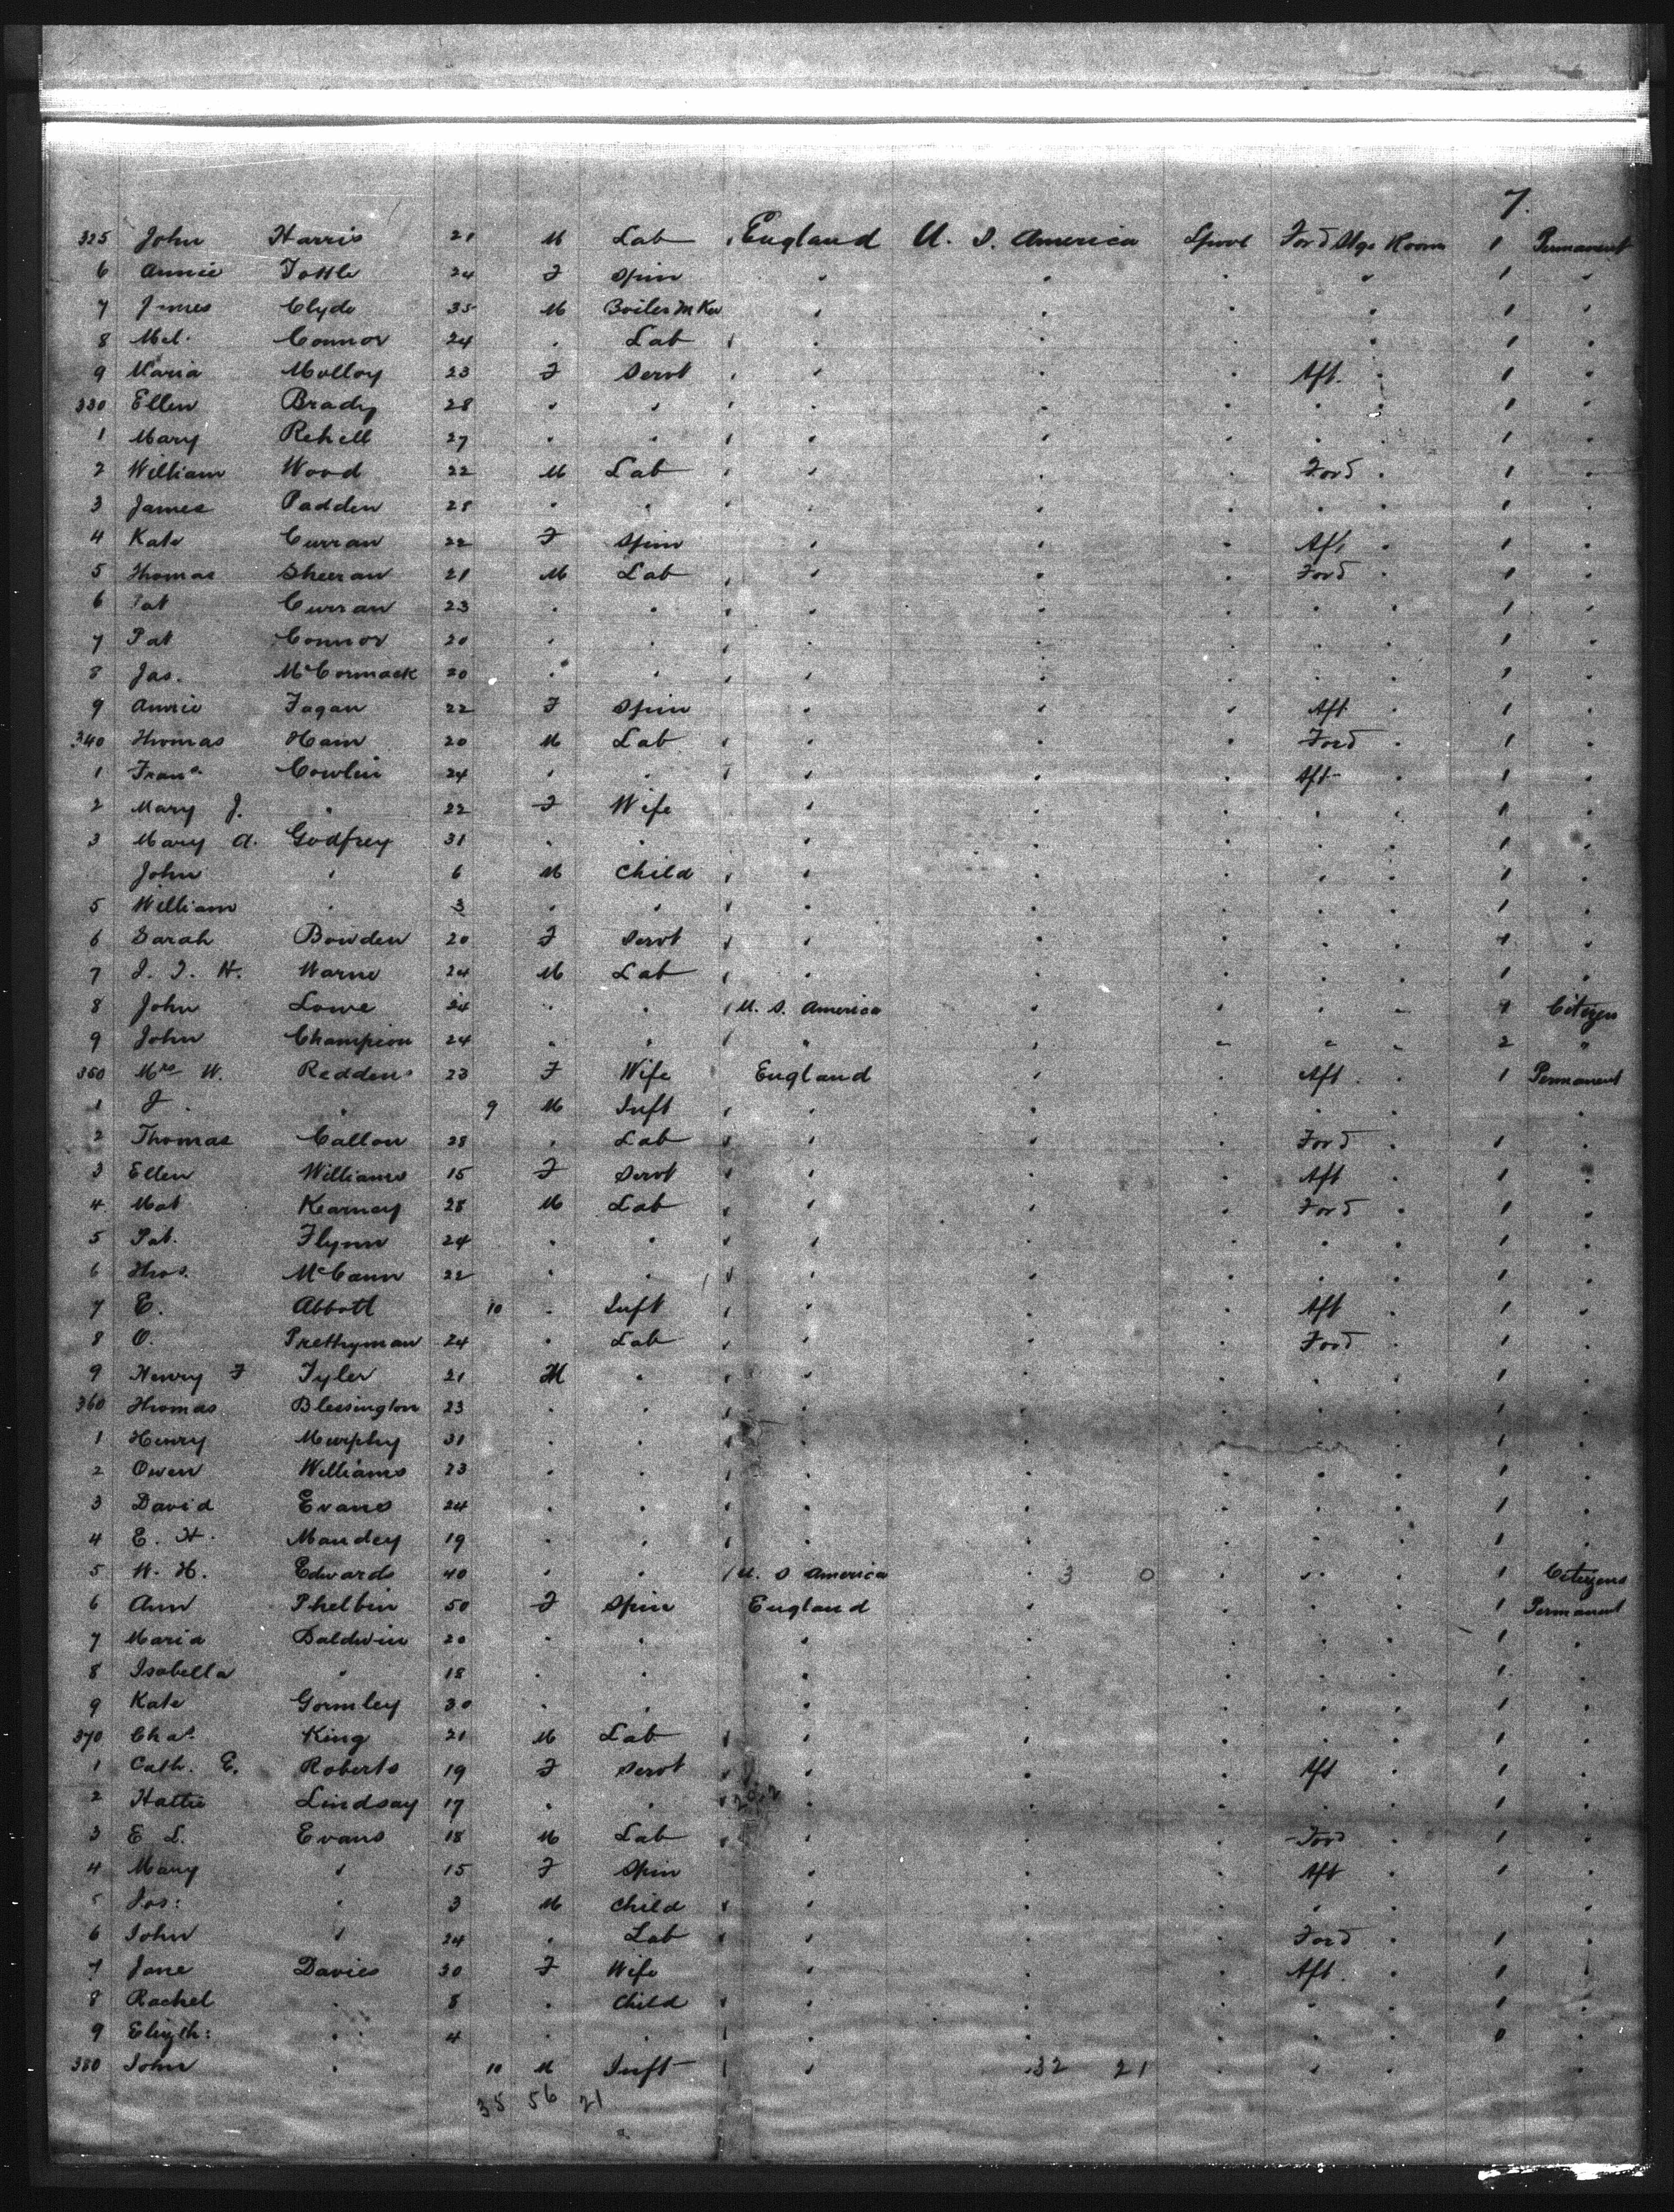 7.
325 John Harris 21 M Lab England U. S. America Lpool Ford Stge Room 1 Permanent
6 Annie Tottle 24 F Spin " " " " 1 "
7 James Clyde 35 M Boiler Mker " " " " 1 "
8 Mcl. Connor 24 " Lab " " " " 1 "
9 Maria Molloy 23 F Servt " " " Aft. " 1 "
330 Ellen Brady 28 " " " " " " " 1 "
1 Mary Rehill 27 " " " " " " " 1 "
2 William Wood 22 M Lab " " " Ford " 1 "
3 James Padden 28 " " " " " " " 1 "
4 Kate Curran 22 F Spin " " " Aft " 1 "
5 Thomas Sheeran 21 M Lab " " " Ford " 1 "
6 Pat Curran 23 " " " " " " " 1 "
7 Pat Connor 20 " " " " " " " 1 "
8 Jas. McCormack 20 " " " " " " " 1 "
9 Annie Fagan 22 F Spin " " " Aft " 1 "
340 Thomas Ham 20 M Lab " " " Ford " 1 "
1 Frans. Cowlin 24 " " " " " Aft " 1 "
2 Mary J. " 22 F Wife " " " " " 1 "
3 Mary A. Godfrey 31 " " " " " " " 1 "
John " 6 M Child " " " " " 1 "
5 William " 3 " " " " " " " 1 "
6 Sarah Bowden 20 F Servt " " " " " 1 "
7 J. J. H. Warne 24 M Lab " " " " " 1 "
8 John Lowe 24 " " U. S. America " " " " 1 Citizen
9 John Champion 24 " " " " " " " 2 "
350 Mrs W. Reddens 23 F Wife England " " Aft " 1 Permanent
1 J. " 9 M Inft " " " " " "
2 Thomas Callon 28 " Lab " " " Ford " 1 "
3 Ellen Williams 15 F Servt " " " Aft " 1 "
4 Mat Kearney 28 M Lab " " " Ford " 1 "
5 Pat. Flynn 24 " " " " " " " 1 "
6 Thos. McCann 22 " " " " " " " 1 "
7 E. Abbott 10 " Inft " " " Aft " 1 "
8 O. Prettyman 24 " Lab " " " Ford " 1 "
9 Henry F Tyler 21 M " " " " " " 1 "
360 Thomas Blessington 23 " " " " " " " 1 "
1 Henry Murphy 31 " " " " " " " 1 "
2 Owen Williams 23 " " " " " " " 1 "
3 David Evans 24 " " " " " " " 1 "
4 E. H. Mandey 19 " " " " " " " 1 "
5 W. H. Edwards 40 " " U. S America " 3 0 " " 1 Citizens
6 Ann Phelbin 50 F Spin England " " " " 1 Permanent
7 Maria Baldwin 20 " " " " " " " 1 "
8 Isabella " 18 " " " " " " " 1 "
9 Kate Gormley 30 " " " " " " " 1 "
370 Chas. King 21 M Lab " " " " " 1 "
1 Cath. E. Roberts 19 F Servt " " " Aft " 1 "
2 Hattie Lindsay 17 " " " " " " " 1 "
3 E L. Evans 18 M Lab " " " Ford " 1 "
4 Mary " 15 F Spin " " " Aft " 1 "
5 Jos: " 3 M Child " " " " " "
6 John " 24 " Lab " " " Ford " 1 "
7 Jane Davies 30 F Wife " " " Aft. " 1 "
8 Rachel " 8 " Child " " " " " 1 "
9 Elizth: " 4 " " " " " " " 0 "
380 John " 10 M Inft " 32 21 " " " "
35 56 21